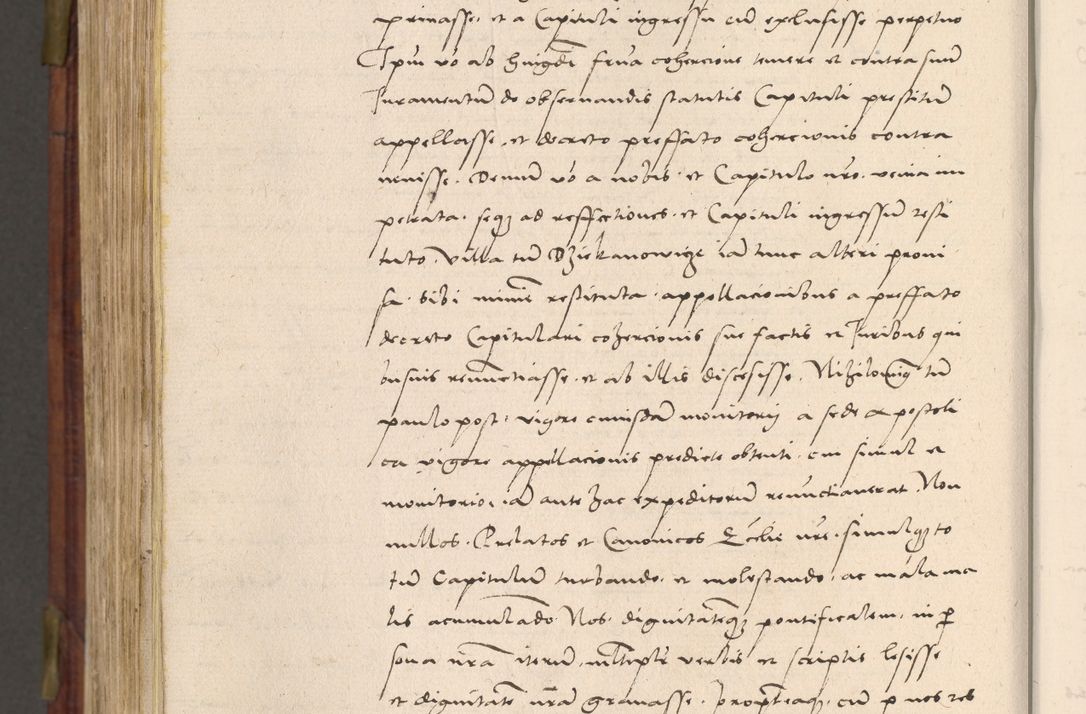 primasse, et a Capituli ingressu eu exclusisse perpetuo
Ipm vo ab huigdi serva cohercione temere et contra suu
Iuramentu de observandis statutis Capituli prestitu
appellasse, et decreto preffato cohercionis contra
venisse. Demu vo a nobis et Capitulo nro, venia im
petrata, seq ad reffectiones et Capituli ingressu resti
tuto. Villa tn Dziekanowize ia tunc alteri provi
sa, sibi minime restituta, appellacionibus a preffato
decreto Capitulari cohercionis sue factis et Iuribus qui
busuis renuctiasse, et ab illis discessisse. Nihilomq tn
paulo post, vigore cuiusda monitorij a sede aposto li
ca vigore appellacionis predicte obtenti, cui simul et
monitorio, ia ante hac expeditoru renuctiauerat, Non
nullos Prelatos et Canonicos Ecclie nre, simulqz to
tu Capitulu turbando, et molestando, ac mala ma
lis acumulado. Nos dignitateqz pontificalem, in p
sona nra iteru, multiplr verbis et scriptis lesisse
et dignitate nram gravasse. Proptereaqz cu p nos res